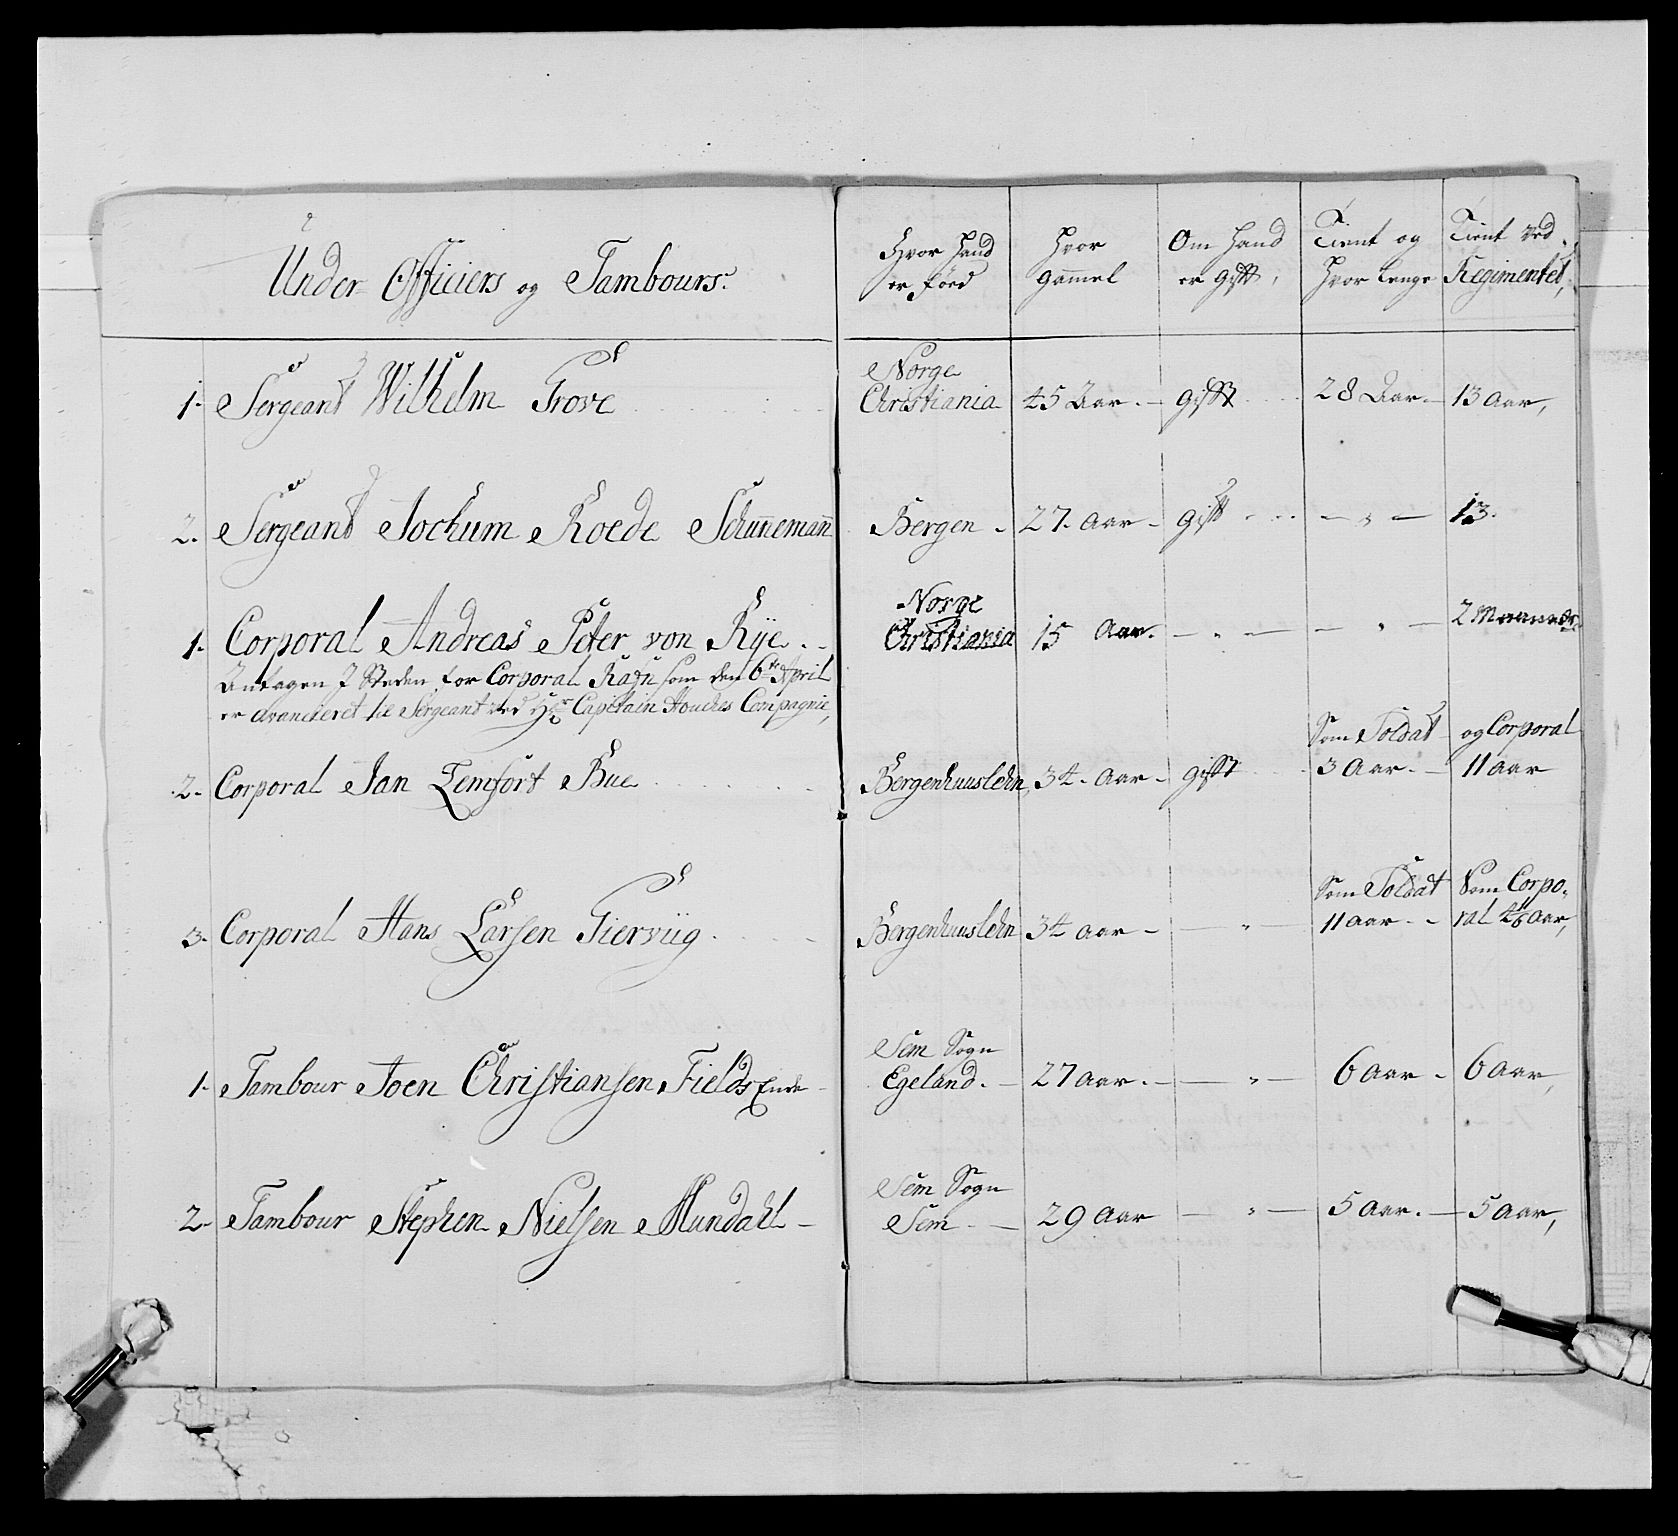 Under Officiers og Tambours. | Hvor Hand er Föed | Hvor Gammel | Om Hand er Gift, | Tient og Hvor Lenge | Tient ved Regimentet,
1. Sergeant Wilhelm Trove | Norge Christiania | 45 Aar. | gift | 28 Aar. | 13 Aar,
2. Sergeant Jochum Roede Schunnemann | Bergen | 27. Aar | gift | — " — | 13.
1. Corporal Andreas Peter von Rÿe. | Norge Christiania | 15 Aar. | — " — | — " — | 2 Maaneder
Antagen I Steden for Corporal Rafn som den 6te April
er avanceret til Sergeant ved Hr Capitain Houches Compagnie,
2. Corporal Jan Lemfort Bue | Bergenhuuslehn, | 34. Aar | gift | Som Soldat 3 Aar. | og Corporal 11 Aar
3. Corporal Hans Larsen Tierviig | Bergenhuuslehn | 34 Aar | — " — | Som Soldat 11 Aar | Som Corporal Aar,
1. Tambour Joen Christiansen Fields Ende | Sem Sogn Egeland. | 27 Aar. | — " — | 6 Aar | 6 Aar,
2. Tambour Stephen Nielsen Mundahl | Sem Sogn Sem | 29 Aar | — " — | 5 Aar. | 5 Aar,